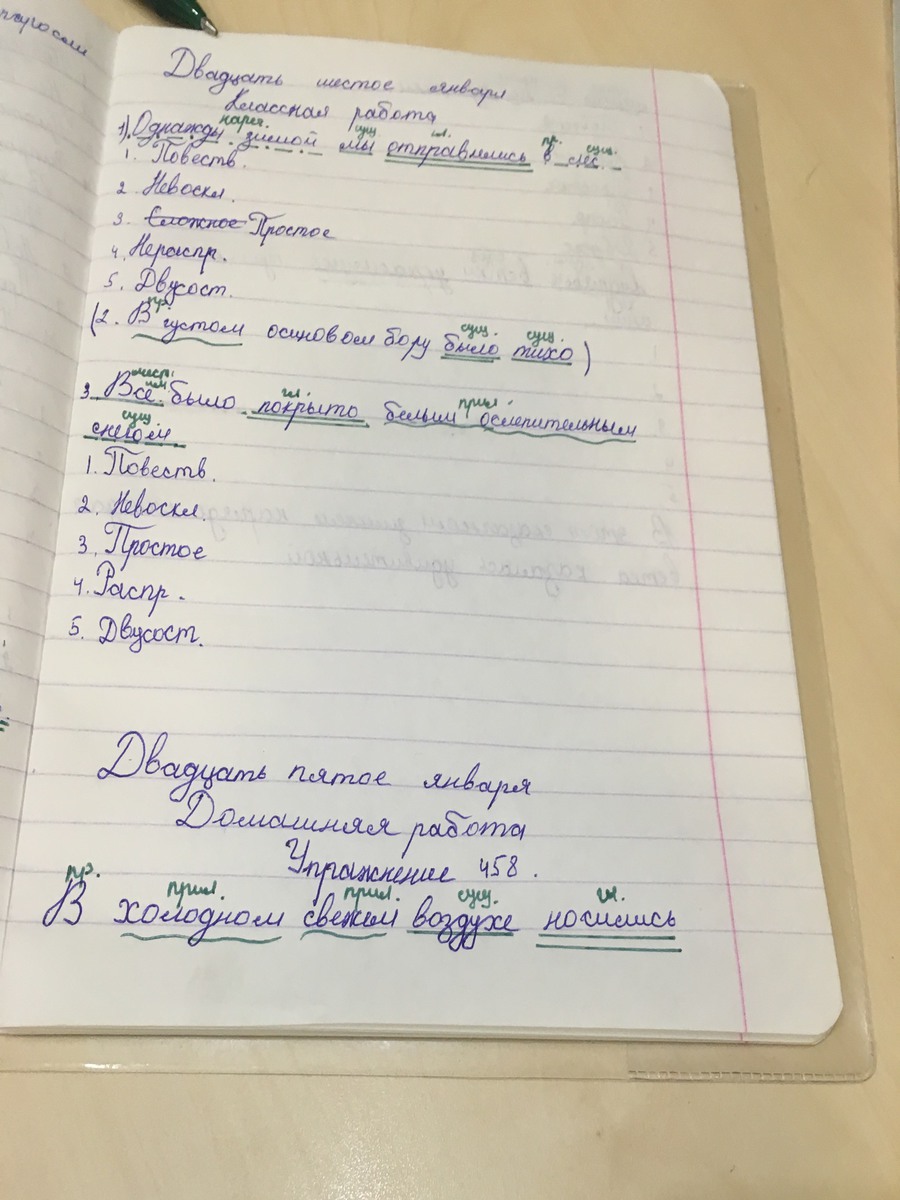 Двадцать шестое января
Классная работа
нареч. сущ. гл. пр. сущ.
1). Однажды зимой мы отправились в лес.
1. Повеств.
2. Невоскл.
3. Сложное Простое
4. Нераспр.
5. Двусост.
пр. сущ. сущ.
(2. В густом осиновом бору было тихо)
мест. гл. прил.
3. Всё было покрыто белым ослепительным
сущ
снегом.
1. Повеств.
2. Невоскл.
3. Простое
4. Распр.
5. Двусост.
Двадцать пятое января
Домашняя работа
Упражнение 458.
пр. прил. прил. сущ. гл.
В холодном свежем воздухе носились